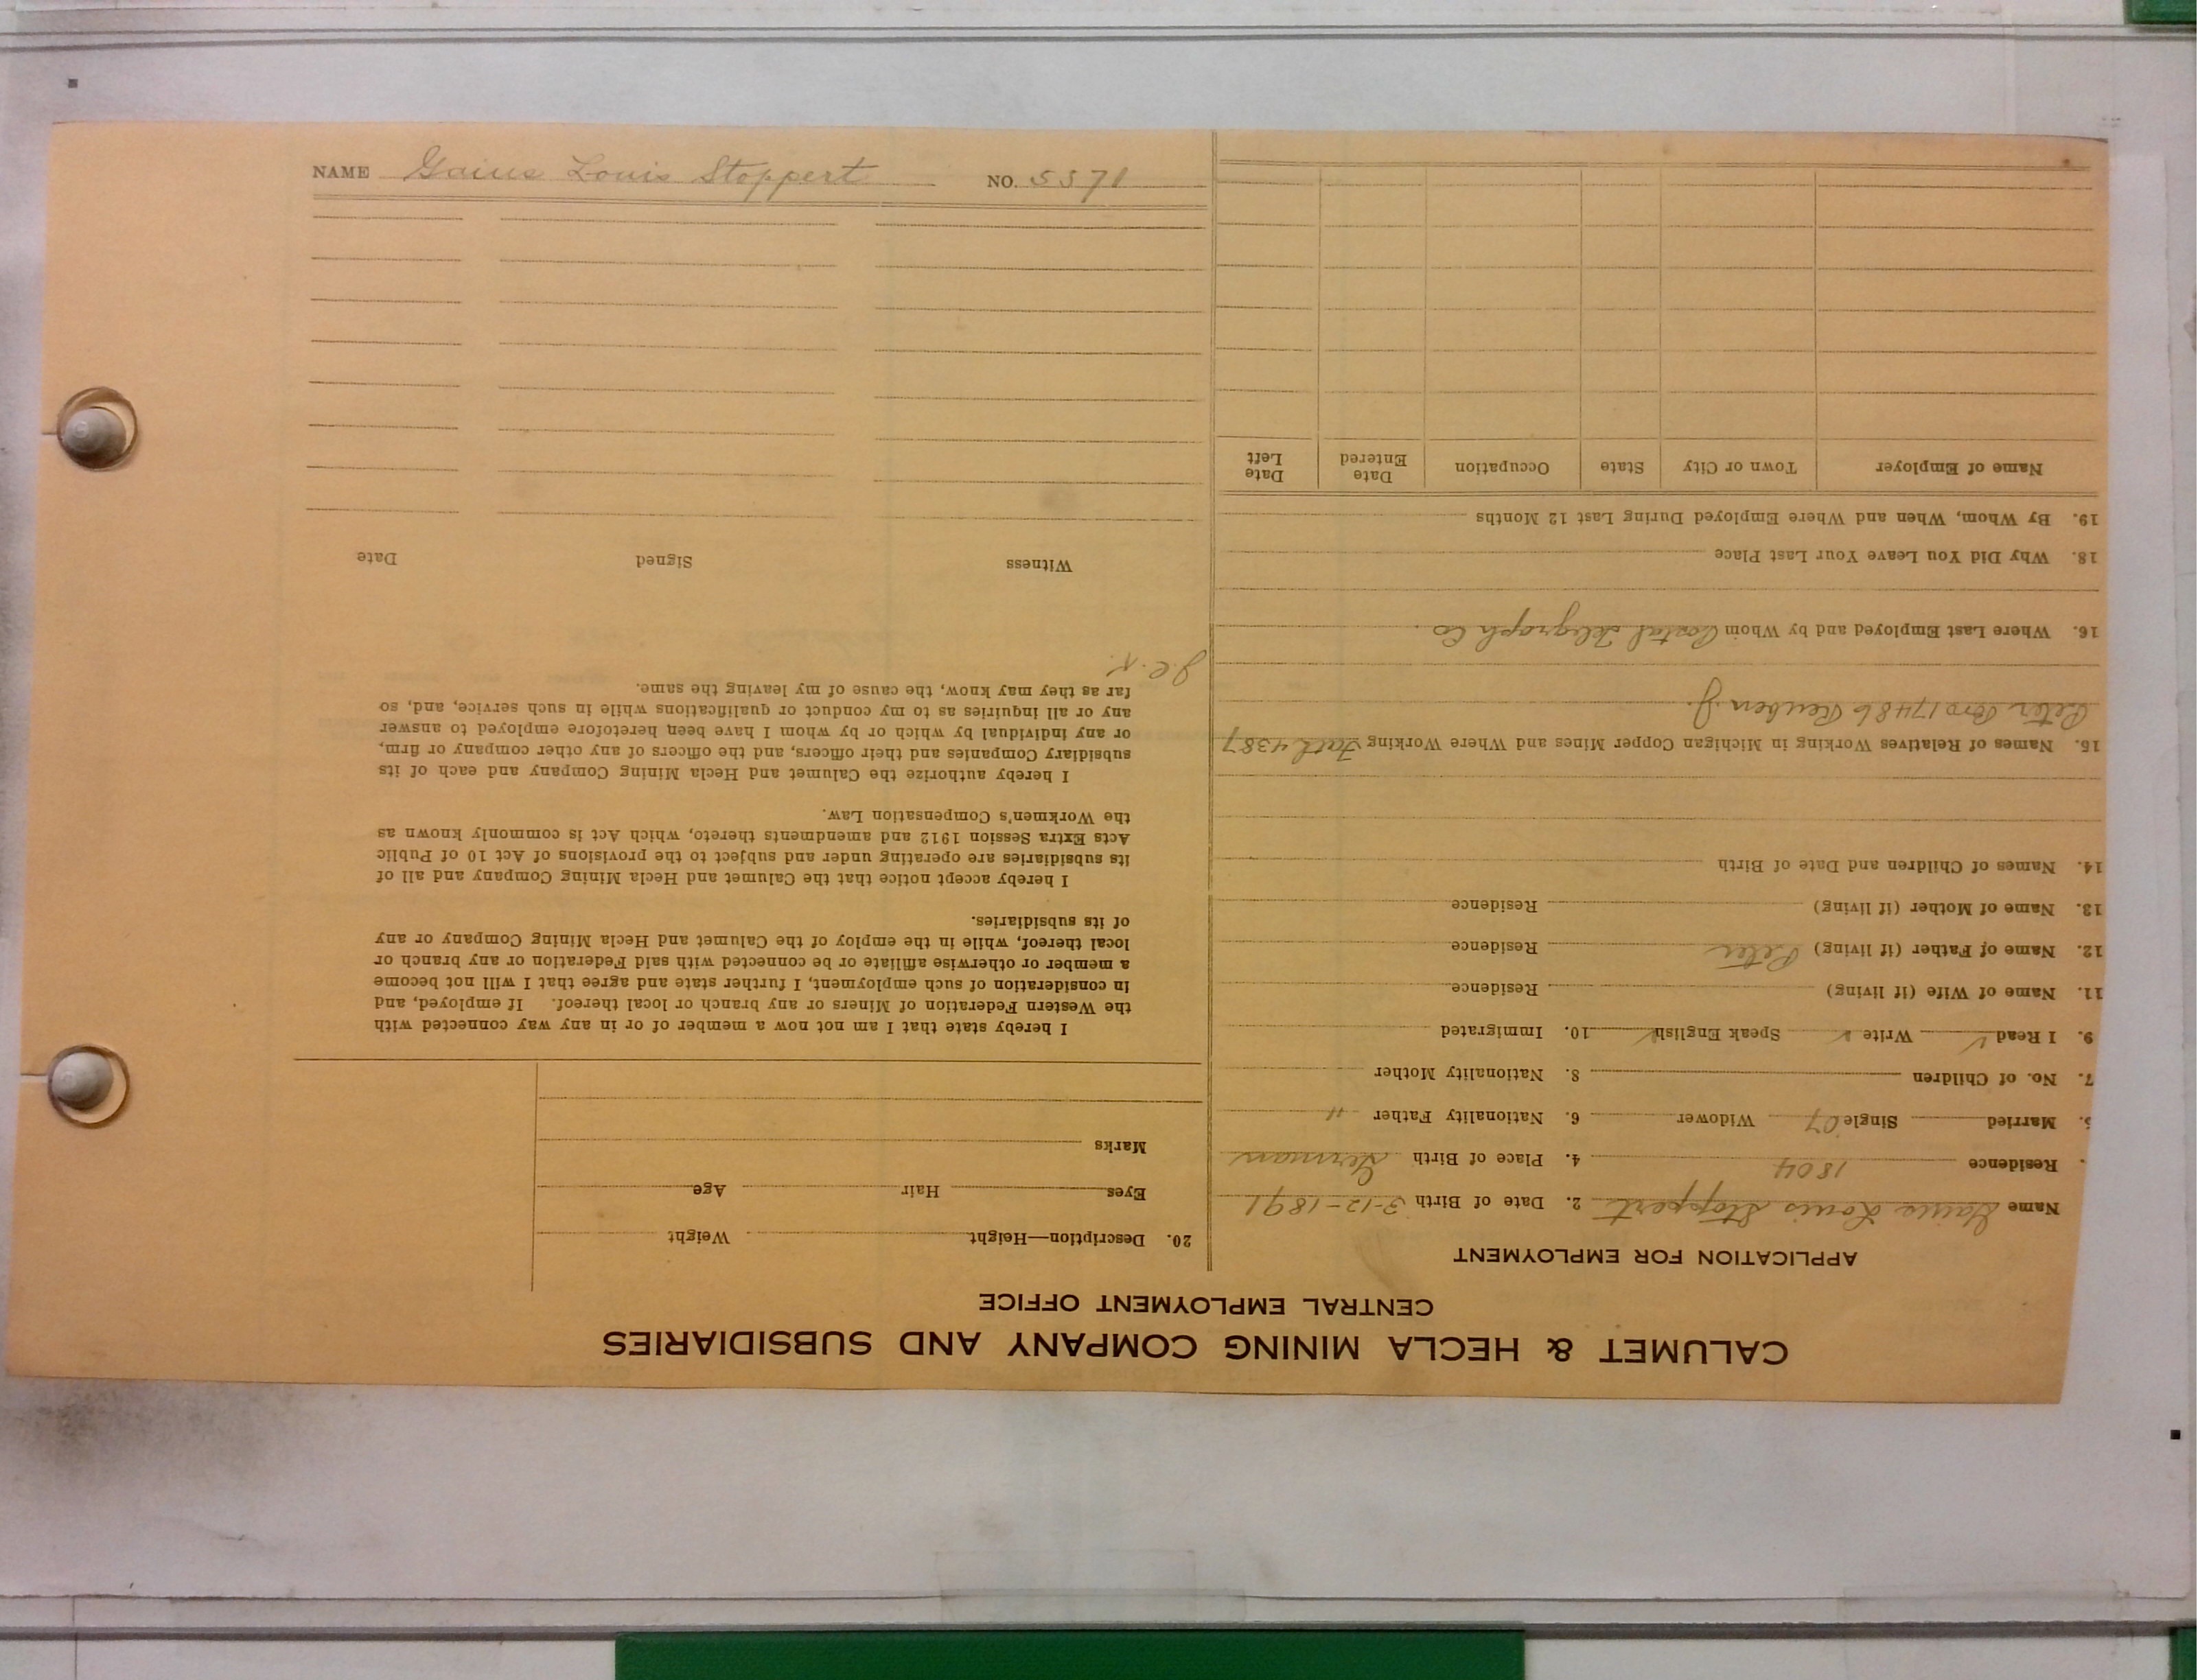 NAME Gaius Louis Stoppert NO. 5571
CALUMET & HECLA MINING COMPANY AND SUBSIDIARIES
CENTRAL EMPLOYMENT OFFICE
APPLICATION FOR EMPLOYMENT
Name Gaius Louis Stoppert 2. Date of Birth 3-12-1891
Residence 1804 4. Place of Birth German
5. Married Single 07 Widower 6. Nationality Father "
7. No. of Children 8. Nationality Mother
9. I Read ✓ Write ✓ Speak English ✓ 10. Immigrated
11. Name of Wife (if living) Residence
12. Name of Father (if living) Peter Residence
13. Name of Mother (if living) Residence
14. Names of Children and Date of Birth
15. Names of Relatives Working in Michigan Copper Mines and Where Working Fath 4387
Peter Bro 17486 Reuben J.
16. Where Last Employed and by Whom Postal Telegraph Co.
18. Why Did You Leave Your Last Place
19. By Whom, When and Where Employed During Last 12 Months
Name of Employer Town or City State Occupation Date Entered Date Left
20. Description—Height Weight
Eyes Hair Age
Marks
I hereby state that I am not now a member of or in any way connected with
the Western Federation of Miners or any branch or local thereof. If employed, and
in consideration of such employment, I further state and agree that I will not become
a member or otherwise affiliate or be connected with said Federation or any branch or
local thereof, while in the employ of the Calumet and Hecla Mining Company or any
of its subsidiaries.
I hereby accept notice that the Calumet and Hecla Mining Company and all of
its subsidiaries are operating under and subject to the provisions of Act 10 of Public
Acts Extra Session 1912 and amendments thereto, which Act is commonly known as
the Workmen's Compensation Law.
I hereby authorize the Calumet and Hecla Mining Company and each of its
subsidiary Companies and their officers, and the officers of any other company or firm,
or any individual by which or by whom I have been heretofore employed to answer
any or all inquiries as to my conduct or qualifications while in such service, and, so
far as they may know, the cause of my leaving the same.
Witness Signed Date